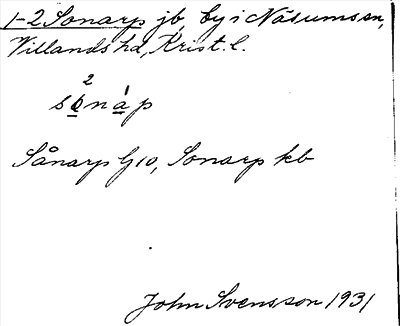 1-2 Sonarp jb, by i Näsums sn,
Villands hd, Krist. l.
2
sònáp
Sånarp G10, Sonarp kb
John Svensson 1931